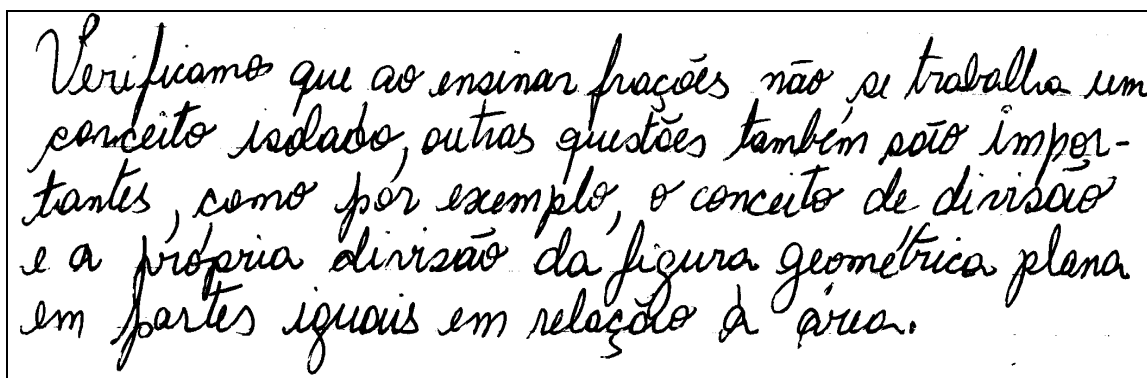 Verificamos que ao ensinar frações não se trabalha um
conceito isolado, outras questões também são impor-
tantes, como por exemplo, o conceito de divisão
e a própria divisão da figura geométrica plana
em partes iguais em relação à área.